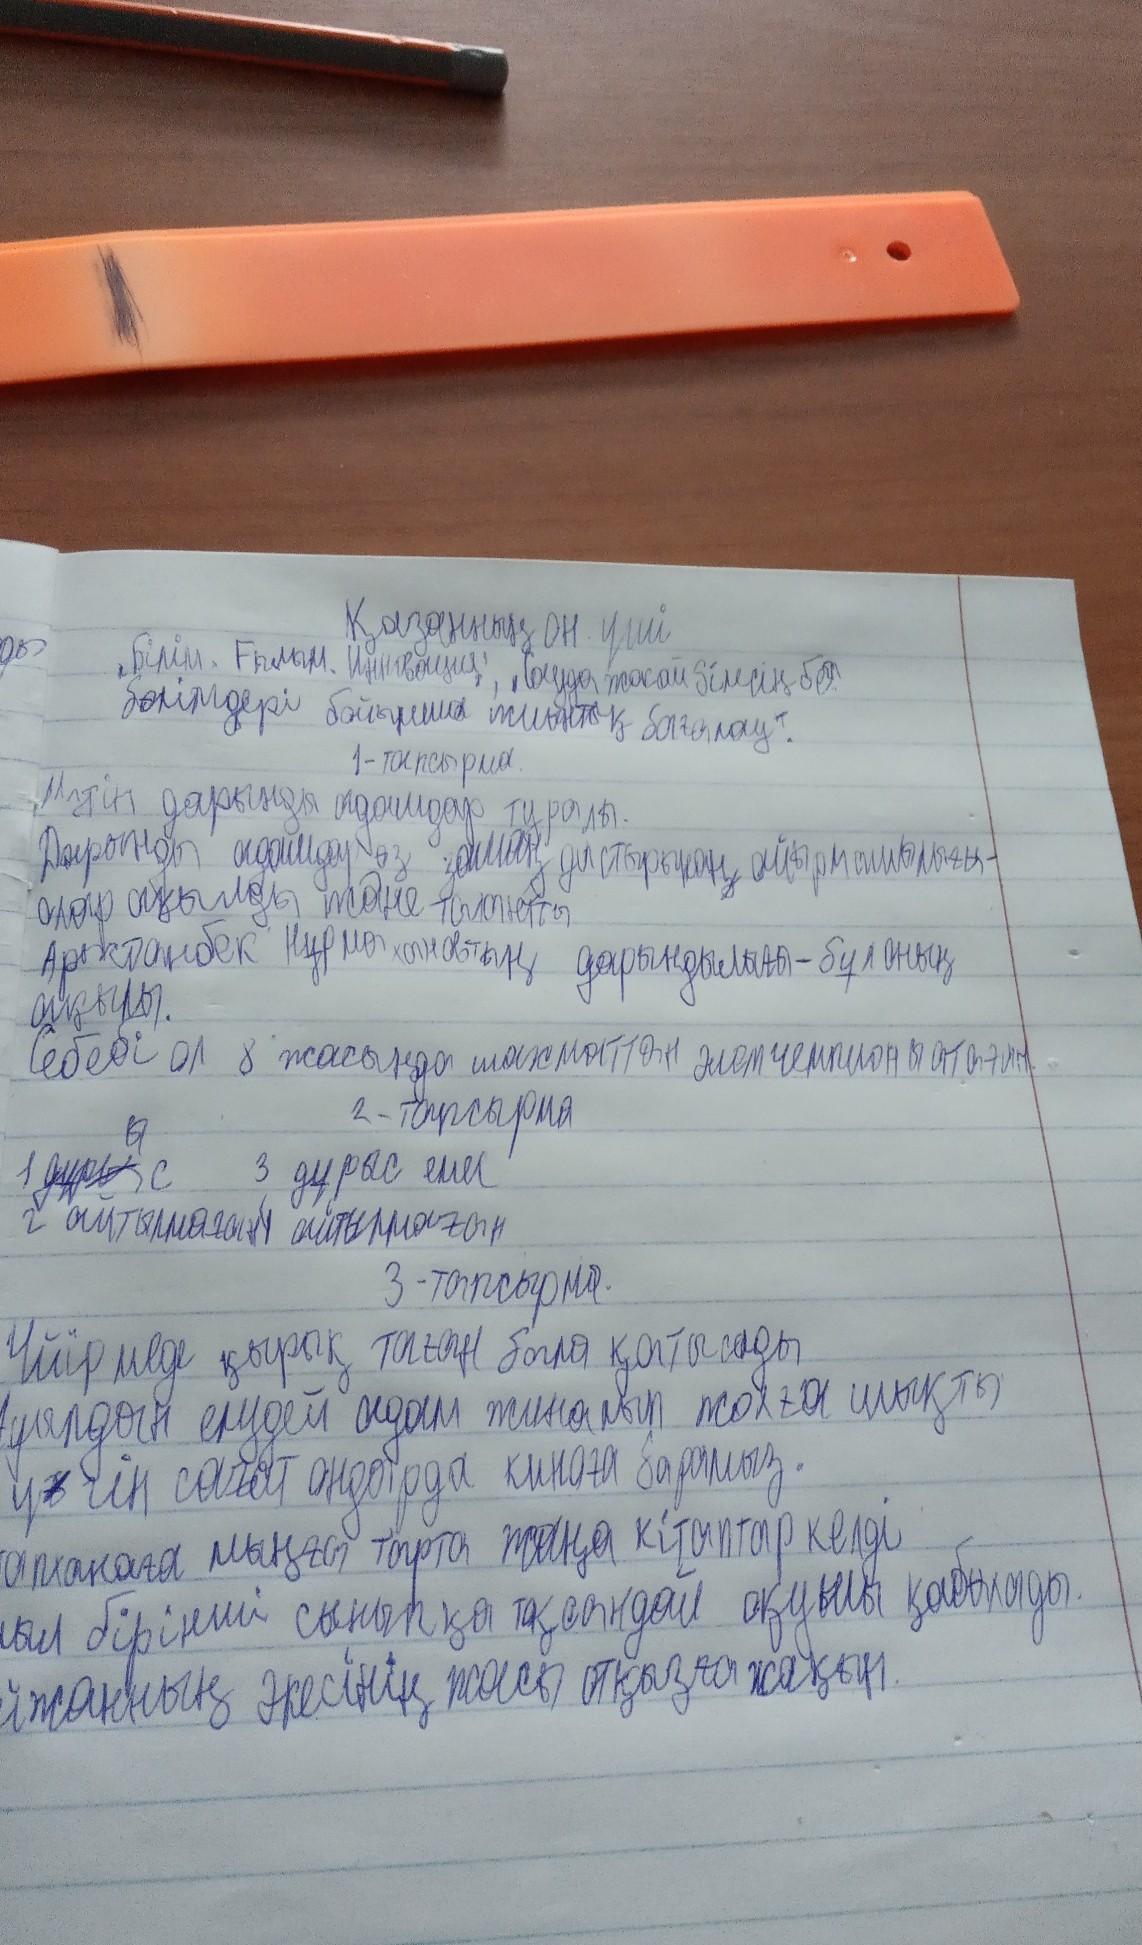 Қазанның он үші
„Білім. Ғылым. Инновация", „Сауда жасай білсің-бөл
бөлімдері бойынша жиынтық бағалау".
1-тапсырма.
Мәтін дарынды адамдар туралы.
Дарынды адамдар өз айырмашылығы-
олар ақылды және таланты
Арыстанбек дарындылығы-бұл оның
ақылы.
Себебі ол 8 жасында шахматтан әлем чемпионы атағын
2-тапсырма
ы
1 с 3 дұрыс емес
2 айтылмаған 4 айтылмаған
3-тапсырма.
Үйірмеде қырық таған бала қатысады
елудей адам жиналып жолға шықты
сағат ондарда киноға барамыз.
мыңға тарта жаңа кітаптар келді
бірінші сыныпқа тоқсандай оқушы қабылдады.
әкесінің жасы отқызға жақын.